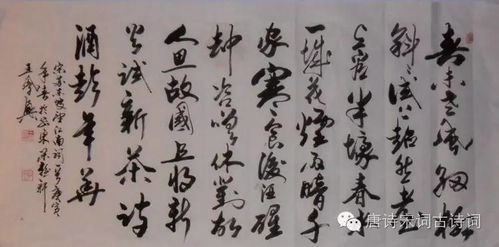 春未老風細柳
斜斜试上超然台
上看半壕春水
一城花煙雨暗千
家寒食後酒醒
却咨嗟休對故
人思故國且將新
火試新茶詩
酒趁年華
宋苏東坡望江南詞 庚寅
年春於京東
王
唐诗宋词古诗词